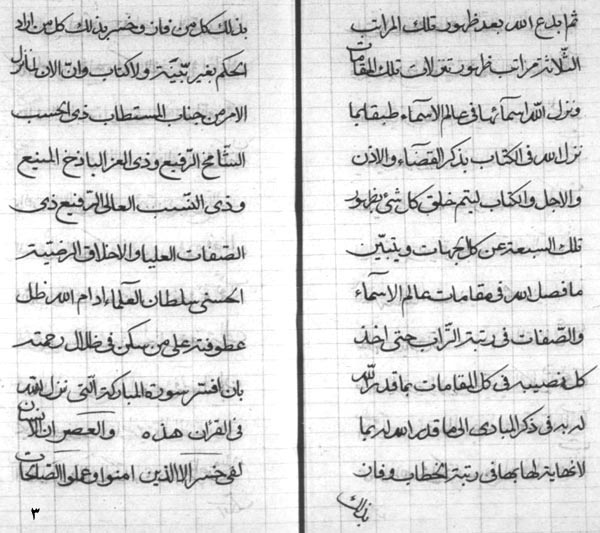 ثم ابدع الله بعد ظهور تلك المراتب
الثلاثة مراتب ظهور تنزلات تلك المقامات
ونزل الله اسمائها في عالم الاسماء طبقا بما
نزل الله في الكتاب بذكر القضاء والاذن
والاجل والكتاب ليتم خلق كل شئ بظهور
تلك السبعة عن كل الجهات ويتبين
ما فصل الله في مقامات عالم الاسماء
والصفات في رتبة التراب حتى اخذ
كل نصيبه في كل المقامات بما قدر الله
له به في ذكر المبادى الى ما قدر الله له بما
لا نهاية لها بها في رتبة الخطاب وفان
بذلك
بذلك كل من فان وخسر بذلك كل من اراد
الحكم بغير بيّنة ولا كتاب وانّ الان لمّا نزل
الامر من جناب المستطاب ذي الحسب
الشّامخ الرّفيع وذى العز الباذخ المنيع
وذى النسب العالى الرّفيع ذى
الصّفات العليا والاخلاق الرضيّة
الحسنى سلطان العلماء ادام الله ظل
عطوفته على من سكن في ظلال رحمته
بان افسّر سورة المباركة الّتى نزل الله
في القران هذه والعصر ان الانسان
لفى خسر الا الذين امنوا وعملوا الصّالحات
٣